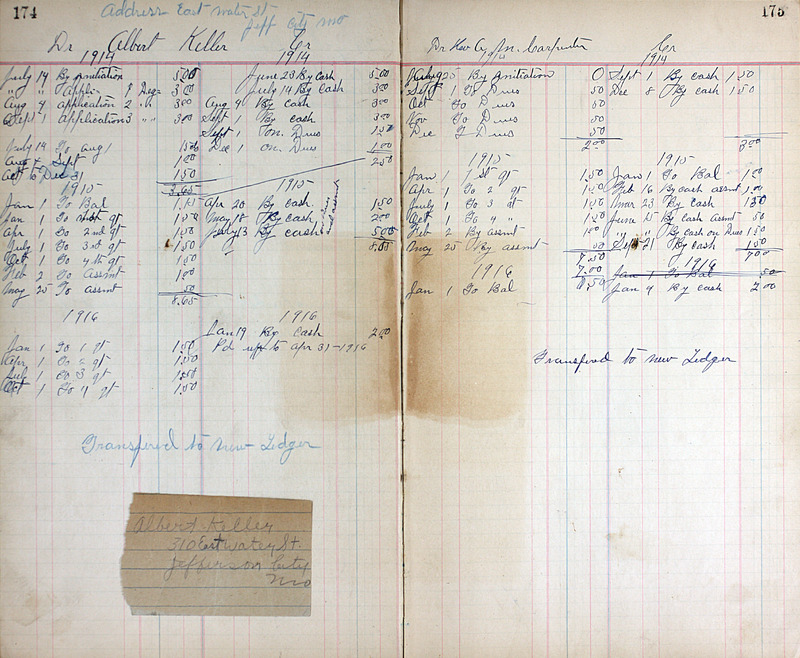 174
Address East Water St
Jeff City Mo
Dr Albert Keller Cr
1914 1914
July 14 By initiation 5.00 June 23 By cash 5.00
" " Appli- 1 Deg 3.00 July 14 By cash 3.00
Aug 4 application 2 " 3.00 Aug 4 By cash 3.00
Sept 1 application 3 " 3.00 Sept 1 By cash 3.00
Sept 1 on. Dues 1.50
July 14 To Aug 1 Dec 1 on. Dues 1.00
Aug 4 Sept 1.00 2.50
Oct to Dec 31 1.50
3.65
1915 1915
Jan 1 To Bal 1.15 Apr 20 By cash 1.50
Jan 1 To 1st qt 1.50 May 18 By cash 2.00
Apr 1 To 2nd qt 1.50 July 13 By cash 5.00
July 1 To 3rd qt 1.50
Oct 1 To 4th qt 1.50
Feb 2 To Assmt 1.00
May 25 To assmt .50
8.65
1916 1916
Jan 19 By cash 2.00
Jan 1 To 1 qt 1.50 Pd up to Apr 31-1916
Apr 1 To 2 qt 1.50
July 1 To 3 qt 1.50
Oct 1 To 4 qt 1.50
Transfered to new Ledger
Albert Keller
310 East Water St.
Jefferson City
Mo
175
Dr Rev A. M. Carpenter Cr
1914
25 By initiation 0 Sept 1 By cash 1.50
Sept 1 To Dues 50 Dec 8 By cash 1.50
Oct To Dues 50
Nov To Dues 50
Dec To Dues 50
2.00 3.00
1915
Jan 1 1st qt 1.50 Jan 1 To Bal 1.00
Apr 1 To 2 qt 1.50 Feb 16 By cash assmt 1.00
July 1 To 3 qt 1.50 Mar 23 By cash 1.50
Oct 1 To 4 " 1.50 June 15 By cash assmt 50
Feb 2 By assmt 1.00 " " By cash on Dues 1.50
May 25 By assmt 50 Sept 21 By cash 1.50
7.50 7.00
7.00
1916 1916
Jan 1 To Bal 50
Jan 1 To Bal .50 Jan 4 By cash 2.00
Transfered to new Ledger